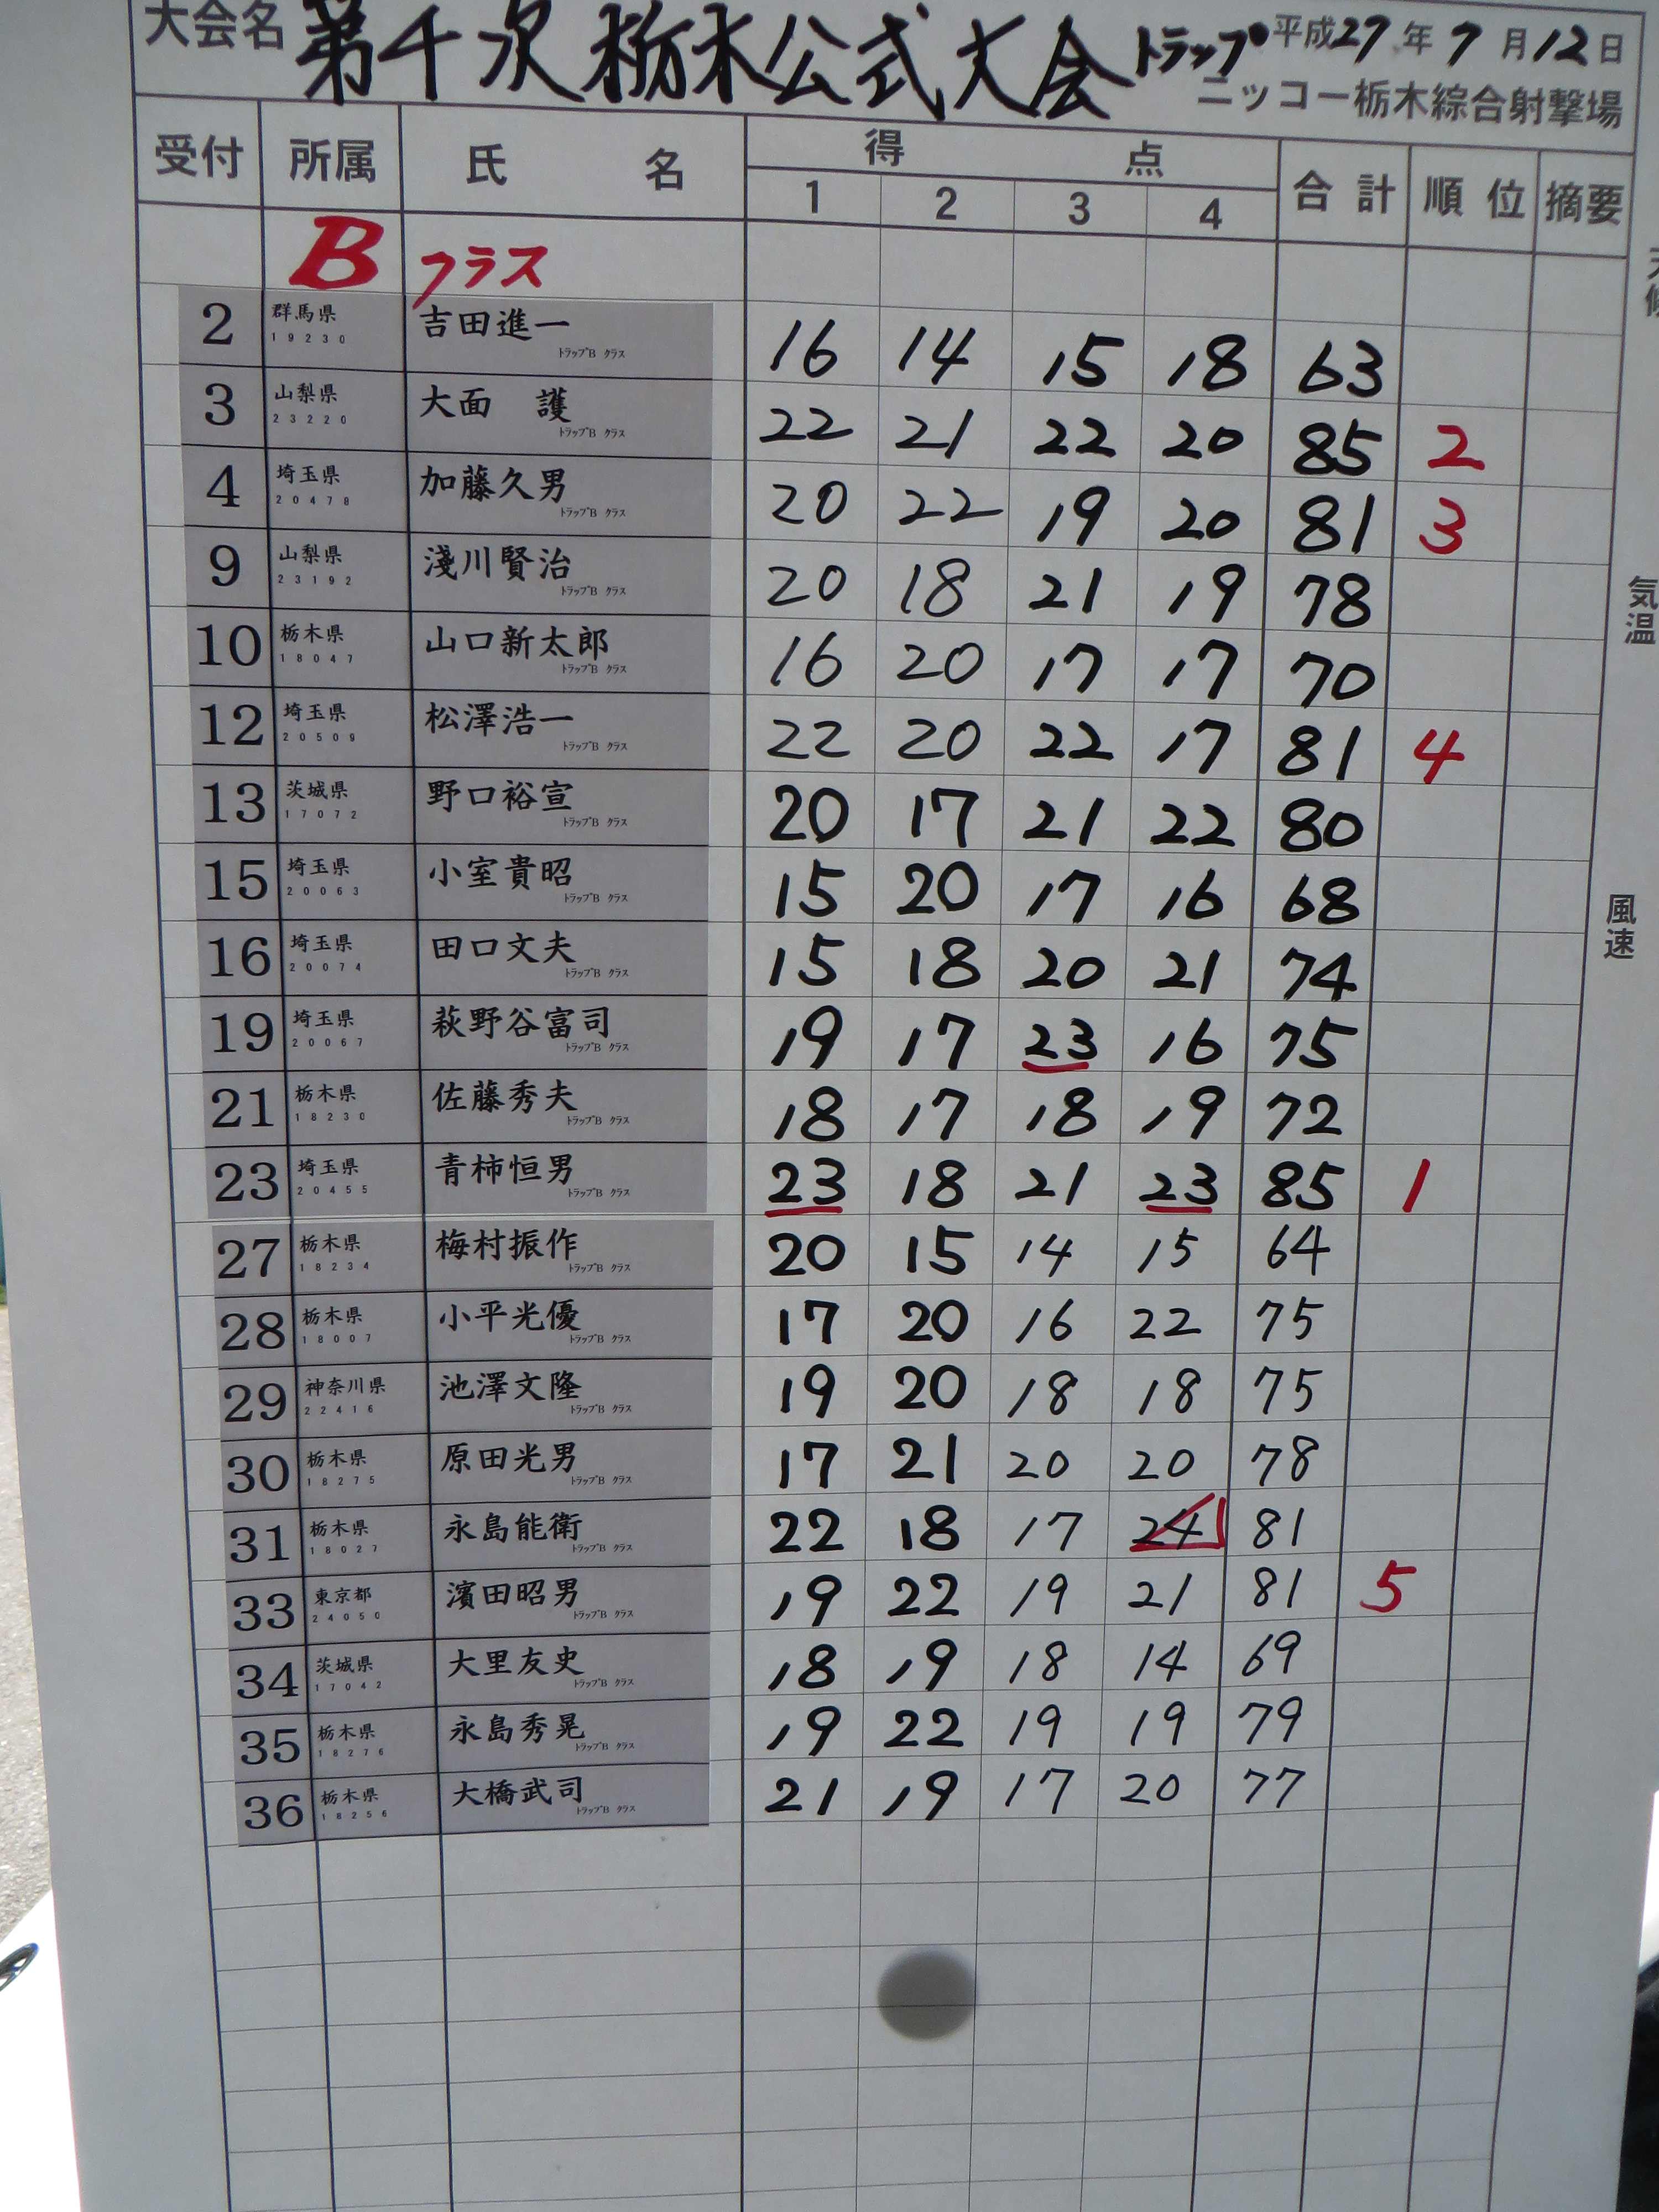 大会名 第十次栃木公式大会 トラップ 平成27年7月12日
ニッコー栃木綜合射撃場
受付 所属 氏名 得点 合計 順位 摘要
1 2 3 4
B クラス
2 群馬県 19230 吉田進一 トラップB クラス 16 14 15 18 63
3 山梨県 23220 大面 護 トラップB クラス 22 21 22 20 85 2
4 埼玉県 20478 加藤久男 トラップB クラス 20 22 19 20 81 3
9 山梨県 23192 淺川賢治 トラップB クラス 20 18 21 19 78
10 栃木県 18047 山口新太郎 トラップB クラス 16 20 17 17 70
12 埼玉県 20509 松澤浩一 トラップB クラス 22 20 22 17 81 4
13 茨城県 17072 野口裕宣 トラップB クラス 20 17 21 22 80
15 埼玉県 20063 小室貴昭 トラップB クラス 15 20 17 16 68
16 埼玉県 20074 田口文夫 トラップB クラス 15 18 20 21 74
19 埼玉県 20067 萩野谷富司 トラップB クラス 19 17 23 16 75
21 栃木県 18230 佐藤秀夫 トラップB クラス 18 17 18 19 72
23 埼玉県 20455 青柿恒男 トラップB クラス 23 18 21 23 85 1
27 栃木県 18234 梅村振作 トラップB クラス 20 15 14 15 64
28 栃木県 18007 小平光優 トラップB クラス 17 20 16 22 75
29 神奈川県 22416 池澤文隆 トラップB クラス 19 20 18 18 75
30 栃木県 18275 原田光男 トラップB クラス 17 21 20 20 78
31 栃木県 18027 永島能衛 トラップB クラス 22 18 17 24 81
33 東京都 24050 濱田昭男 トラップB クラス 19 22 19 21 81 5
34 茨城県 17042 大里友史 トラップB クラス 18 19 18 14 69
35 栃木県 18276 永島秀晃 トラップB クラス 19 22 19 19 79
36 栃木県 18256 大橋武司 トラップB クラス 21 19 17 20 77
気温
風速